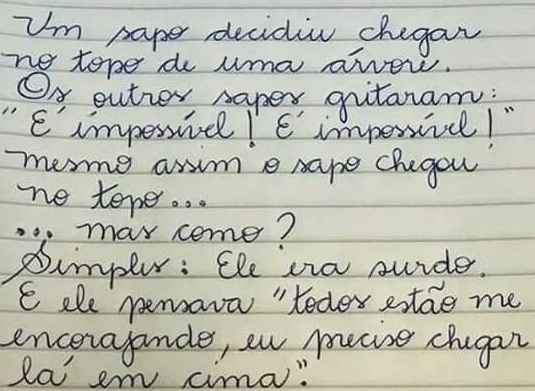 Um sapo decidiu chegar
no topo de uma árvore.
Os outros sapos gritaram:
"É impossível! É impossível!"
mesmo assim o sapo chegou
no topo...
... mas como?
Simples: Ele era surdo.
E ele pensava "todos estão me
encorajando, eu preciso chegar
lá em cima".